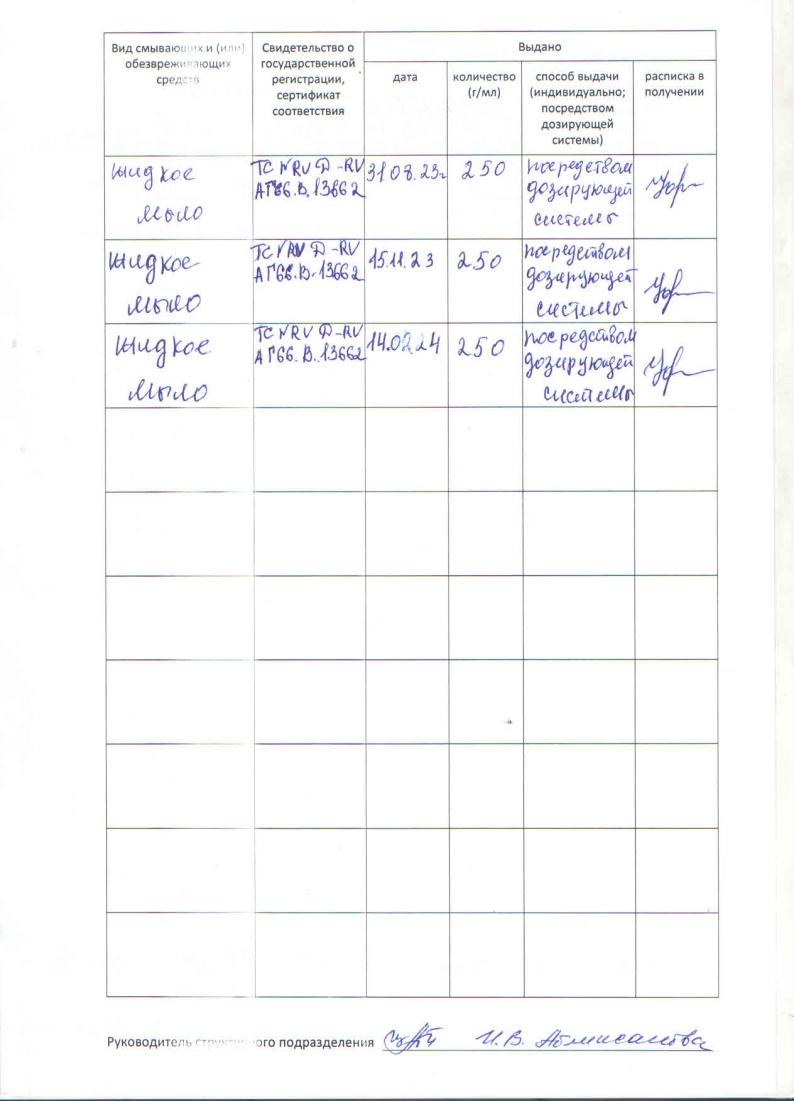 Вид смывающих и (или)
обезвреживающих
средств
Свидетельство о
государственной
регистрации,
сертификат
соответствия
Выдано
дата
количество
(г/мл)
способ выдачи
(индивидуально;
посредством
дозирующей
системы)
расписка в
получении
жидкое
мыло
ТС N RU Д-RU
АГ66.В.13662
31.08.23г
250
посредством
дозирующей
системы
жидкое
мыло
ТС N RU Д-RU
АГ66.В.13662
15.11.23
250
посредством
дозирующей
системы
жидкое
мыло
ТС N RU Д-RU
АГ66.В.13662
14.02.24
250
посредством
дозирующей
системы
Руководитель структурного подразделения И.В.